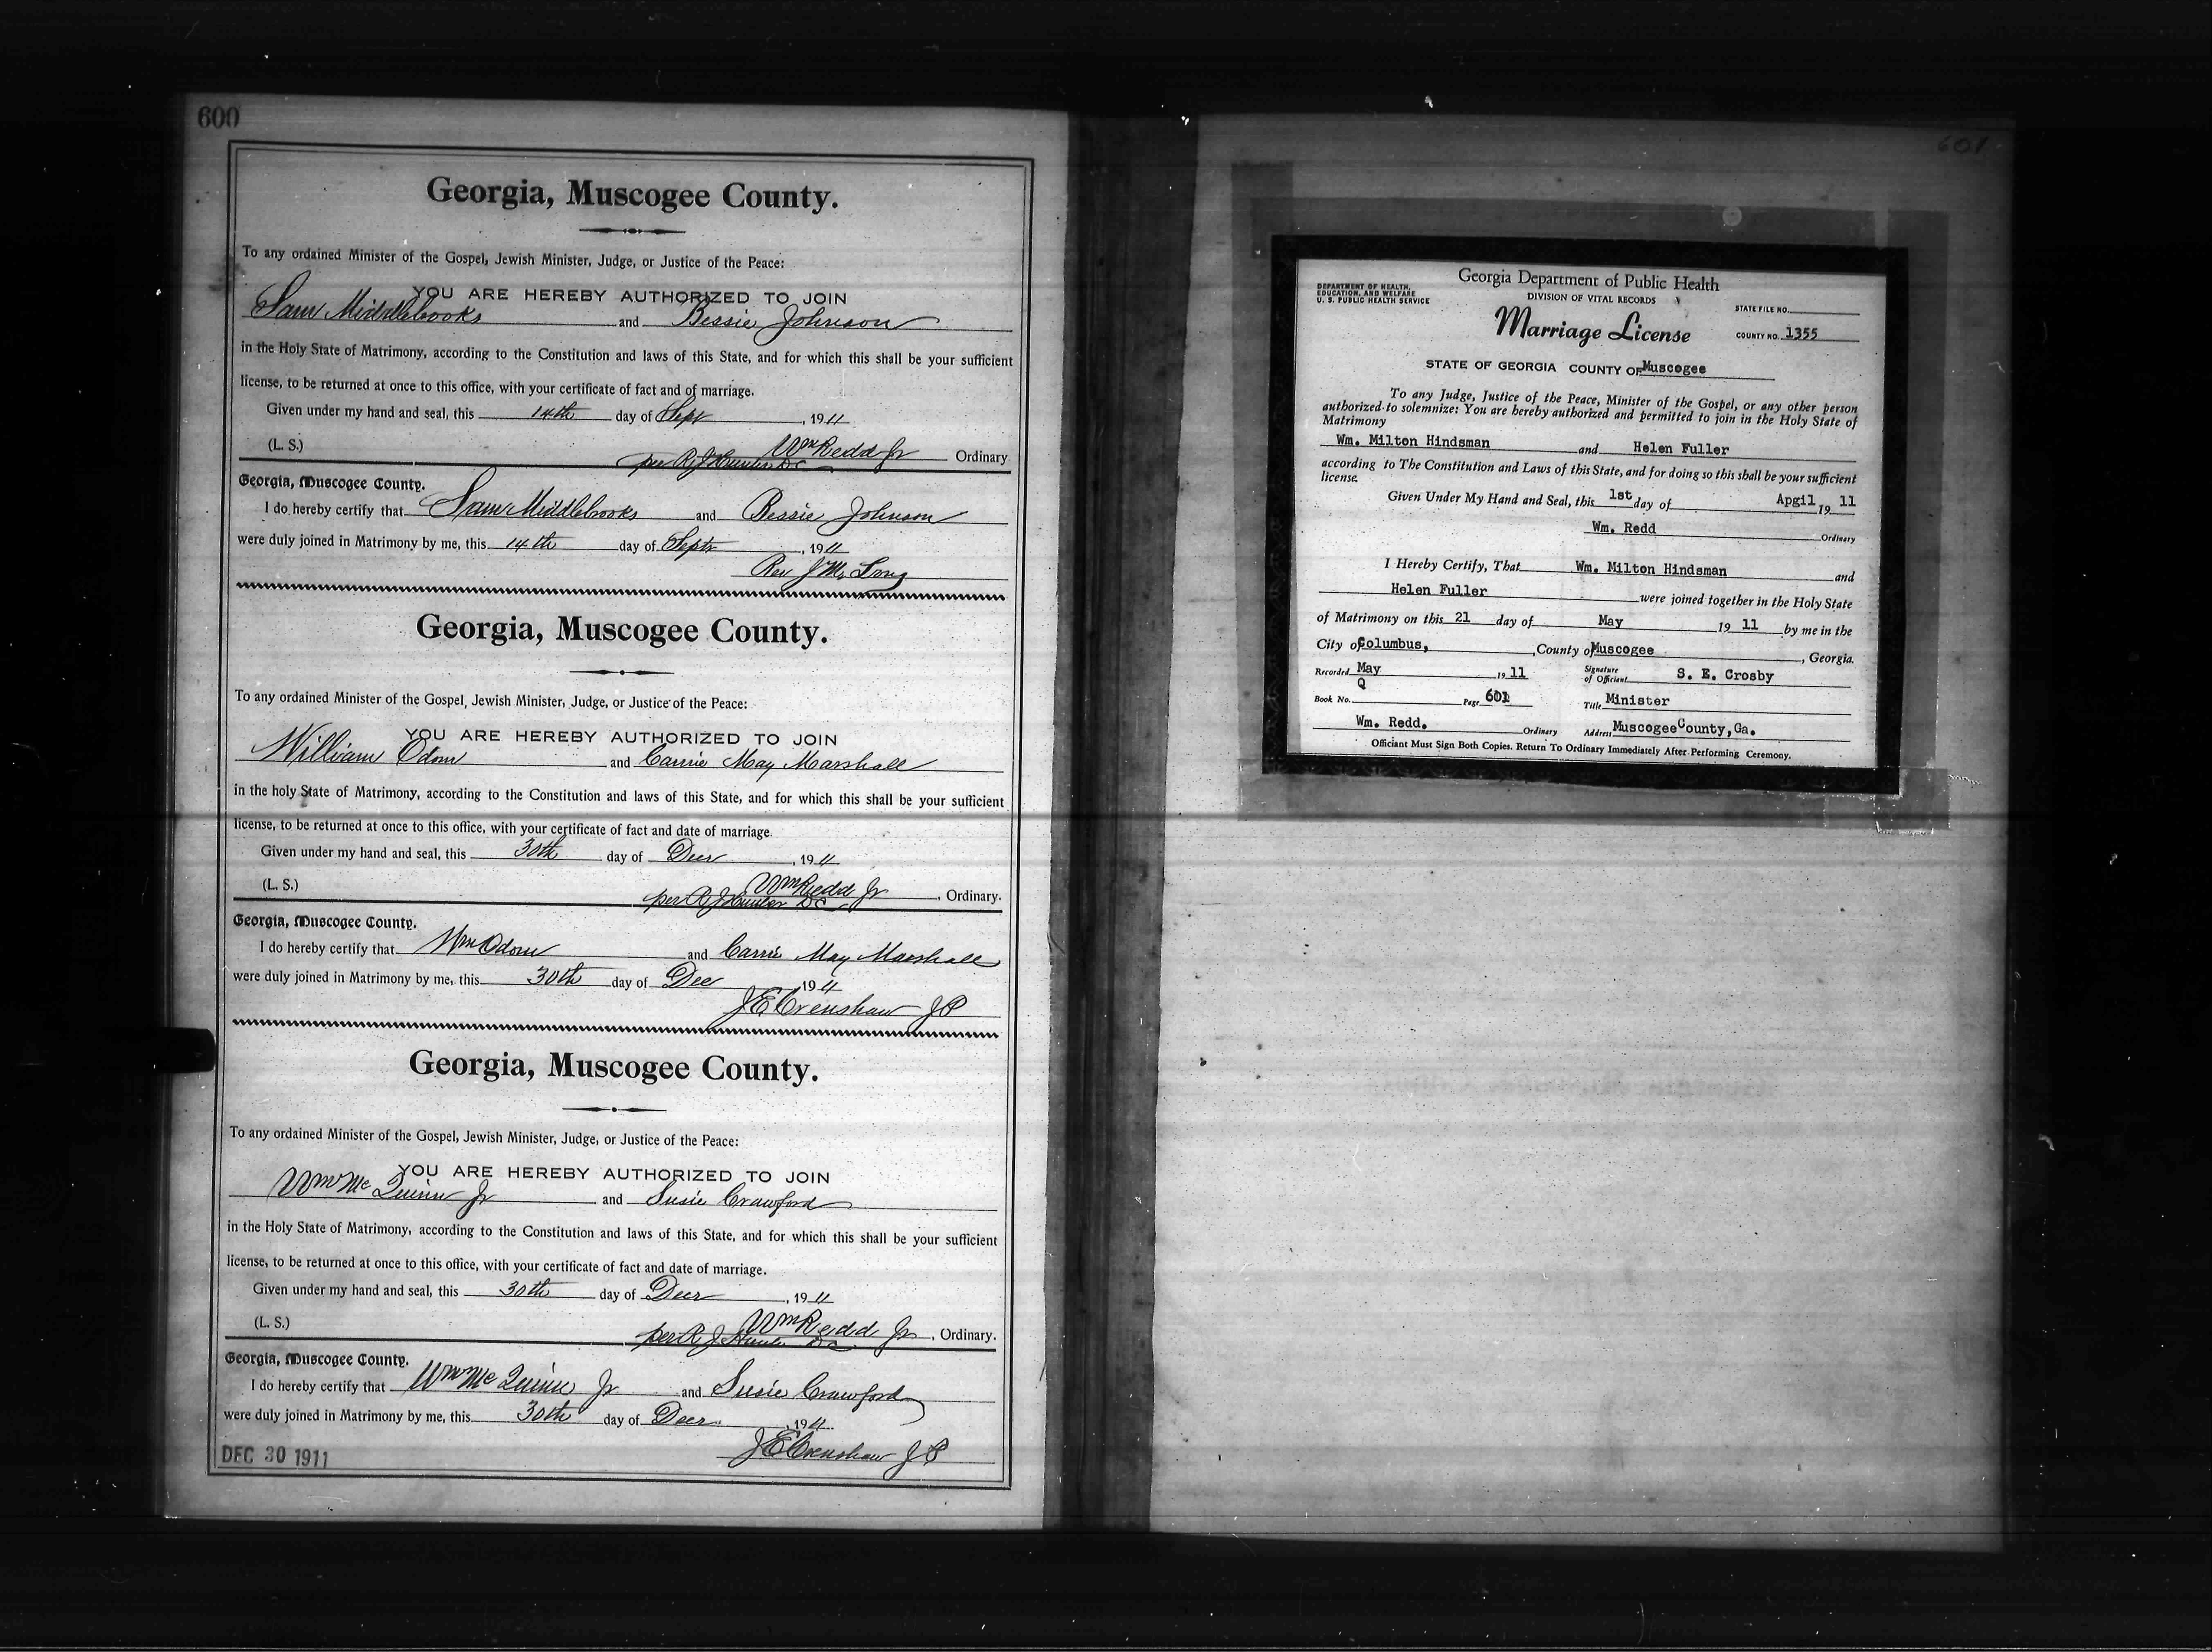 600
Georgia, Muscogee County.
To any ordained Minister of the Gospel, Jewish Minister, Judge, or Justice of the Peace:
YOU ARE HEREBY AUTHORIZED TO JOIN
Sam Middlebooks and Bessie Johnson
in the Holy State of Matrimony, according to the Constitution and laws of this State, and for which this shall be your sufficient
license, to be returned at once to this office, with your certificate of fact and of marriage.
Given under my hand and seal, this 14th day of Sept, 1911
(L. S.) Wm Redd Jr Ordinary
per R J Hunter DC
Georgia, Muscogee County.
I do hereby certify that Sam Middlebooks and Bessie Johnson
were duly joined in Matrimony by me, this 14th day of Septr, 1911
Rev J M Long
Georgia, Muscogee County.
To any ordained Minister of the Gospel, Jewish Minister, Judge, or Justice of the Peace:
YOU ARE HEREBY AUTHORIZED TO JOIN
William Odom and Carrie May Marshall
in the holy State of Matrimony, according to the Constitution and laws of this State, and for which this shall be your sufficient
license, to be returned at once to this office, with your certificate of fact and date of marriage.
Given under my hand and seal, this 30th day of Decr, 1911
(L. S.) Wm Redd Jr, Ordinary.
per R J Hunter DC
Georgia, Muscogee County.
I do hereby certify that Wm Odom and Carrie May Marshall
were duly joined in Matrimony by me, this 30th day of Dec, 1911
J E Crenshaw J P
Georgia, Muscogee County.
To any ordained Minister of the Gospel, Jewish Minister, Judge, or Justice of the Peace:
YOU ARE HEREBY AUTHORIZED TO JOIN
Wm McQuinn Jr and Susie Crawford
in the Holy State of Matrimony, according to the Constitution and laws of this State, and for which this shall be your sufficient
license, to be returned at once to this office, with your certificate of fact and date of marriage.
Given under my hand and seal, this 30th day of Decr, 1911
(L. S.) Wm Redd Jr, Ordinary.
per R J Hunter DC
Georgia, Muscogee County.
I do hereby certify that Wm McQuinn Jr and Susie Crawford
were duly joined in Matrimony by me, this 30th day of Decr, 1911
J E Crenshaw J P
DEC 30 1911
601
Georgia Department of Public Health
DEPARTMENT OF HEALTH,
EDUCATION, AND WELFARE
U. S. PUBLIC HEALTH SERVICE
DIVISION OF VITAL RECORDS
STATE FILE NO.
Marriage License
COUNTY NO. 1355
STATE OF GEORGIA COUNTY OF Muscogee
To any Judge, Justice of the Peace, Minister of the Gospel, or any other person
authorized to solemnize: You are hereby authorized and permitted to join in the Holy State of
Matrimony
Wm. Milton Hindsman and Helen Fuller
according to The Constitution and Laws of this State, and for doing so this shall be your sufficient
license.
Given Under My Hand and Seal, this 1st day of Apgil 19 11
Wm. Redd Ordinary
I Hereby Certify, That Wm. Milton Hindsman and
Helen Fuller were joined together in the Holy State
of Matrimony on this 21 day of May 19 11 by me in the
City of Columbus, County of Muscogee, Georgia.
Recorded May 19 11 Signature of Officiant S. E. Crosby
Book No. Q Page 601 Title Minister
Wm. Redd. Ordinary Address Muscogee County, Ga.
Officiant Must Sign Both Copies. Return To Ordinary Immediately After Performing Ceremony.